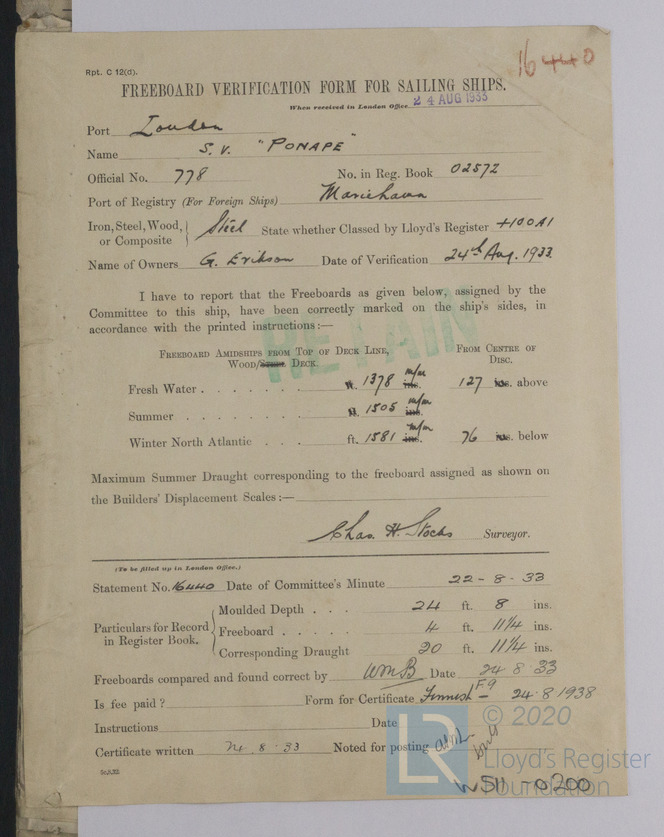 16440
Rpt. C 12(d).
FREEBOARD VERIFICATION FORM FOR SAILING SHIPS.
When received in London Office 24 AUG 1933
Port London
Name S.V. "PONAPE"
Official No. 778 No. in Reg. Book 02572
Port of Registry (For Foreign Ships) Mariehamn
Iron, Steel, Wood, or Composite } Steel State whether Classed by Lloyd's Register +100A1
Name of Owners G. Erikson Date of Verification 24th Aug. 1933
I have to report that the Freeboards as given below, assigned by the
Committee to this ship, have been correctly marked on the ship's sides, in
accordance with the printed instructions:—
RETAIN
FREEBOARD AMIDSHIPS FROM TOP OF DECK LINE, FROM CENTRE OF
WOOD/STEEL DECK. DISC.
Fresh Water . . . . . . . ft. 1378 m/m ins. 127 ins. above
Summer . . . . . . . . ft. 1505 m/m ins.
Winter North Atlantic . . . ft. 1581 m/m ins. 76 ins. below
Maximum Summer Draught corresponding to the freeboard assigned as shown on
the Builders' Displacement Scales:—
Chas. H. Stocks Surveyor.
(To be filled up in London Office.)
Statement No. 16440 Date of Committee's Minute 22-8-33
Particulars for Record in Register Book.
Moulded Depth . . . 24 ft. 8 ins.
Freeboard . . . . . 4 ft. 11 1/4 ins.
Corresponding Draught 20 ft. 11 1/4 ins.
Freeboards compared and found correct by WMB Date 24.8.33
Is fee paid? Form for Certificate Finnish F9 24.8.1938
Instructions Date
Certificate written 24.8.33 Noted for posting
© 2020
LR
Lloyd's Register
Foundation
W511-0200